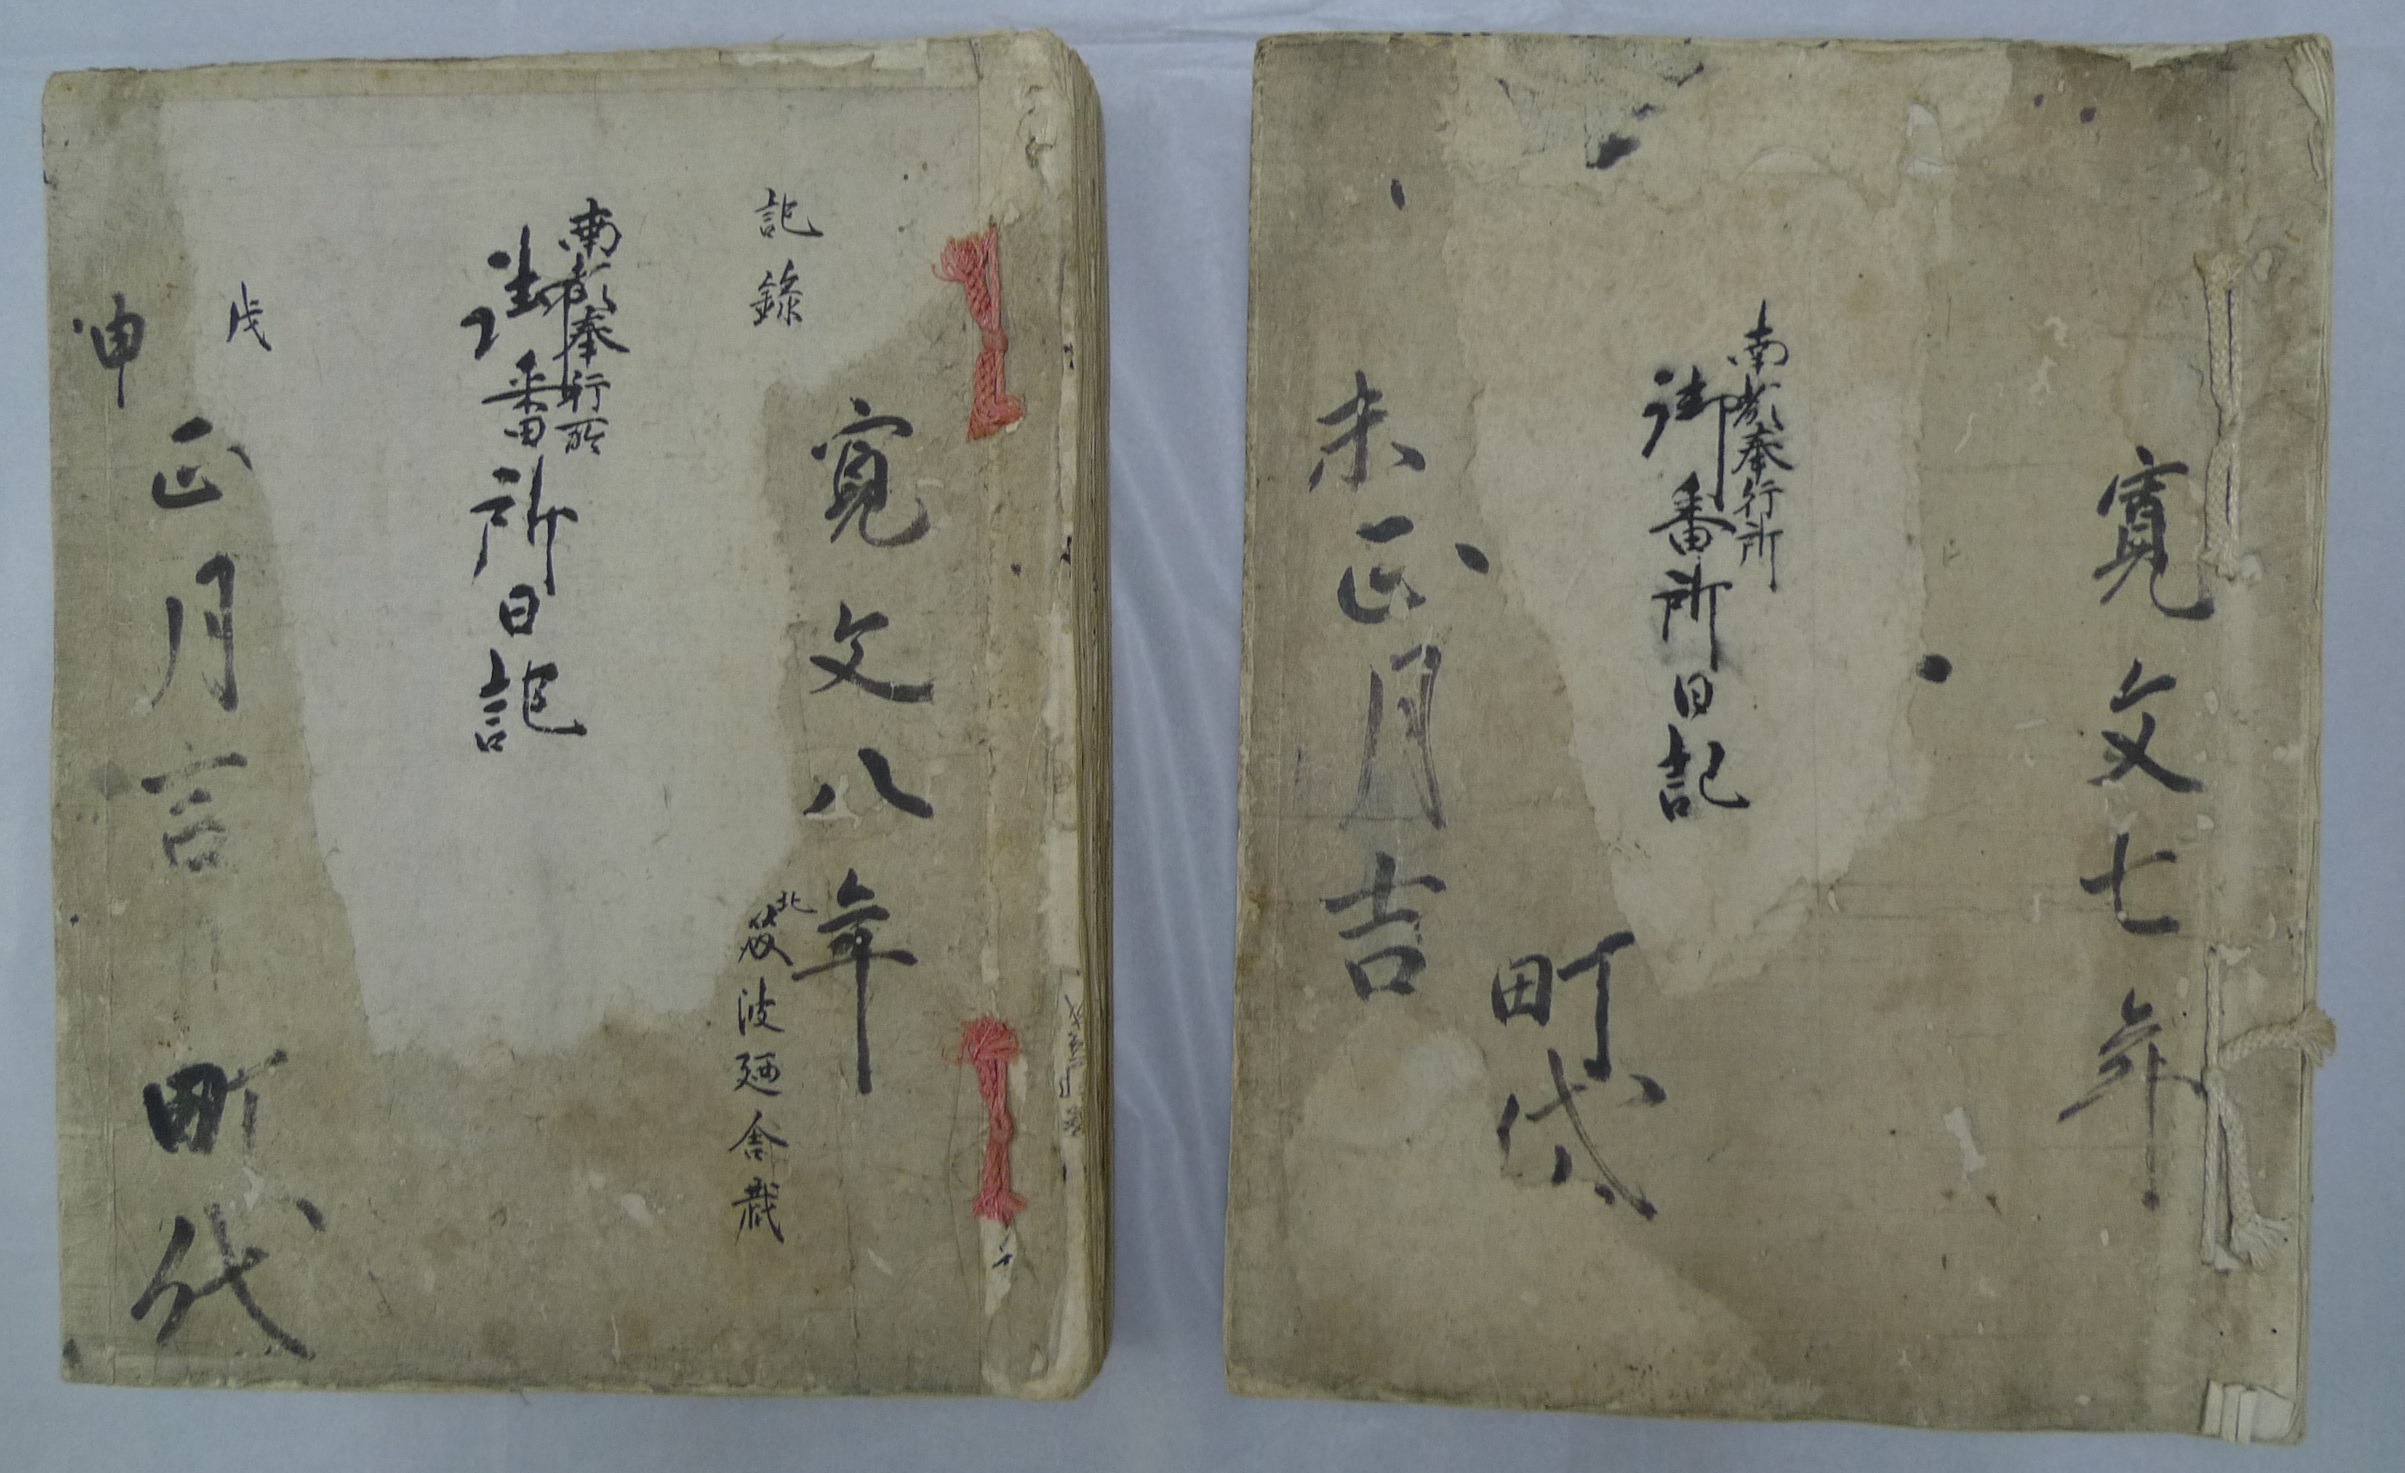 寛文七年
南都奉行所
御番所日記
町代
未正月吉
寛文八年
記録
北
筱波廼舎蔵
南都奉行所
御番所日記
戊
申
正月吉
町代